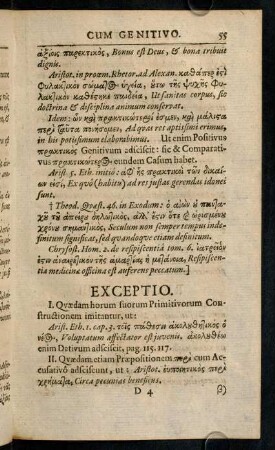 CUM GENITIVO. 55
ἀξίοις παρεκτικὸς, Bonus est Deus, & bona tribuit
dignis.
Aristot. in proœm. Rhetor. ad Alexan. καθάπερ ἐστὶ
φυλακτικὸν σώματος ὑγεία, ὕτω τῆς ψυχῆς φυ-
λακτικὸν καθέστηκε παιδεία, Ut sanitas corpus, sic
doctrina & disciplina animum conservat.
Idem: ὧν καὶ πρακτικώτεροι ἐσμεν, καὶ μάλιστα
περὶ ταῦτα ποιήσομεν, Ad quæ res aptissimi erimus,
in his potissimum elaborabimus. Ut enim Positivus
πρακτικὸς Genitivum adsciscit: sic & Comparati-
vus πρακτικώτερος eundem Casum habet.
Arist. 5. Eth. initio: ἀφ' ἧς πρακτικοὶ τῶν δικαί-
ων εἰσὶ, Ex quo (habitu) ad res justas gerendas idonei
sunt.
† Theod. Quæst. 46. in Exodum: ὁ αἰὼν ὐ πανταχοῦ
τῦ ἀπείρυ δηλωτικὸς, ἀλλ' ἔστιν ὅτε καὶ ὡρισμένυ
χρόνυ σημαντικὸς, Seculum non semper tempus inde-
finitum significat, sed quandoque etiam definitum.
Chrysost. Hom. 2. de resipiscentia tom. 6. ἰατρεῖόν
ἐστιν ἀναιρετικὸν τῆς ἁμαρτίας ἡ μετάνοια, Resipiscen-
tia medicinæ officina est auferens peccatum.]
EXCEPTIO.
I. Quædam horum suorum Primitivorum Con-
structionem imitantur, ut:
Arist. Eth. 1. cap. 3. τοῖς πάθεσιν ἀκολουθητικὸς ὁ
νέος, Voluptatum affectator est juvenis. ἀκολουθέω
enim Dativum adsciscit, pag. 115. 117.
II. Quædam etiam Præpositionem περὶ cum Ac-
cusativo adsciscunt, ut: Aristot. εὐποιητικὸς περὶ
χρήματα, Circa pecunias beneficus.
D 4 β)